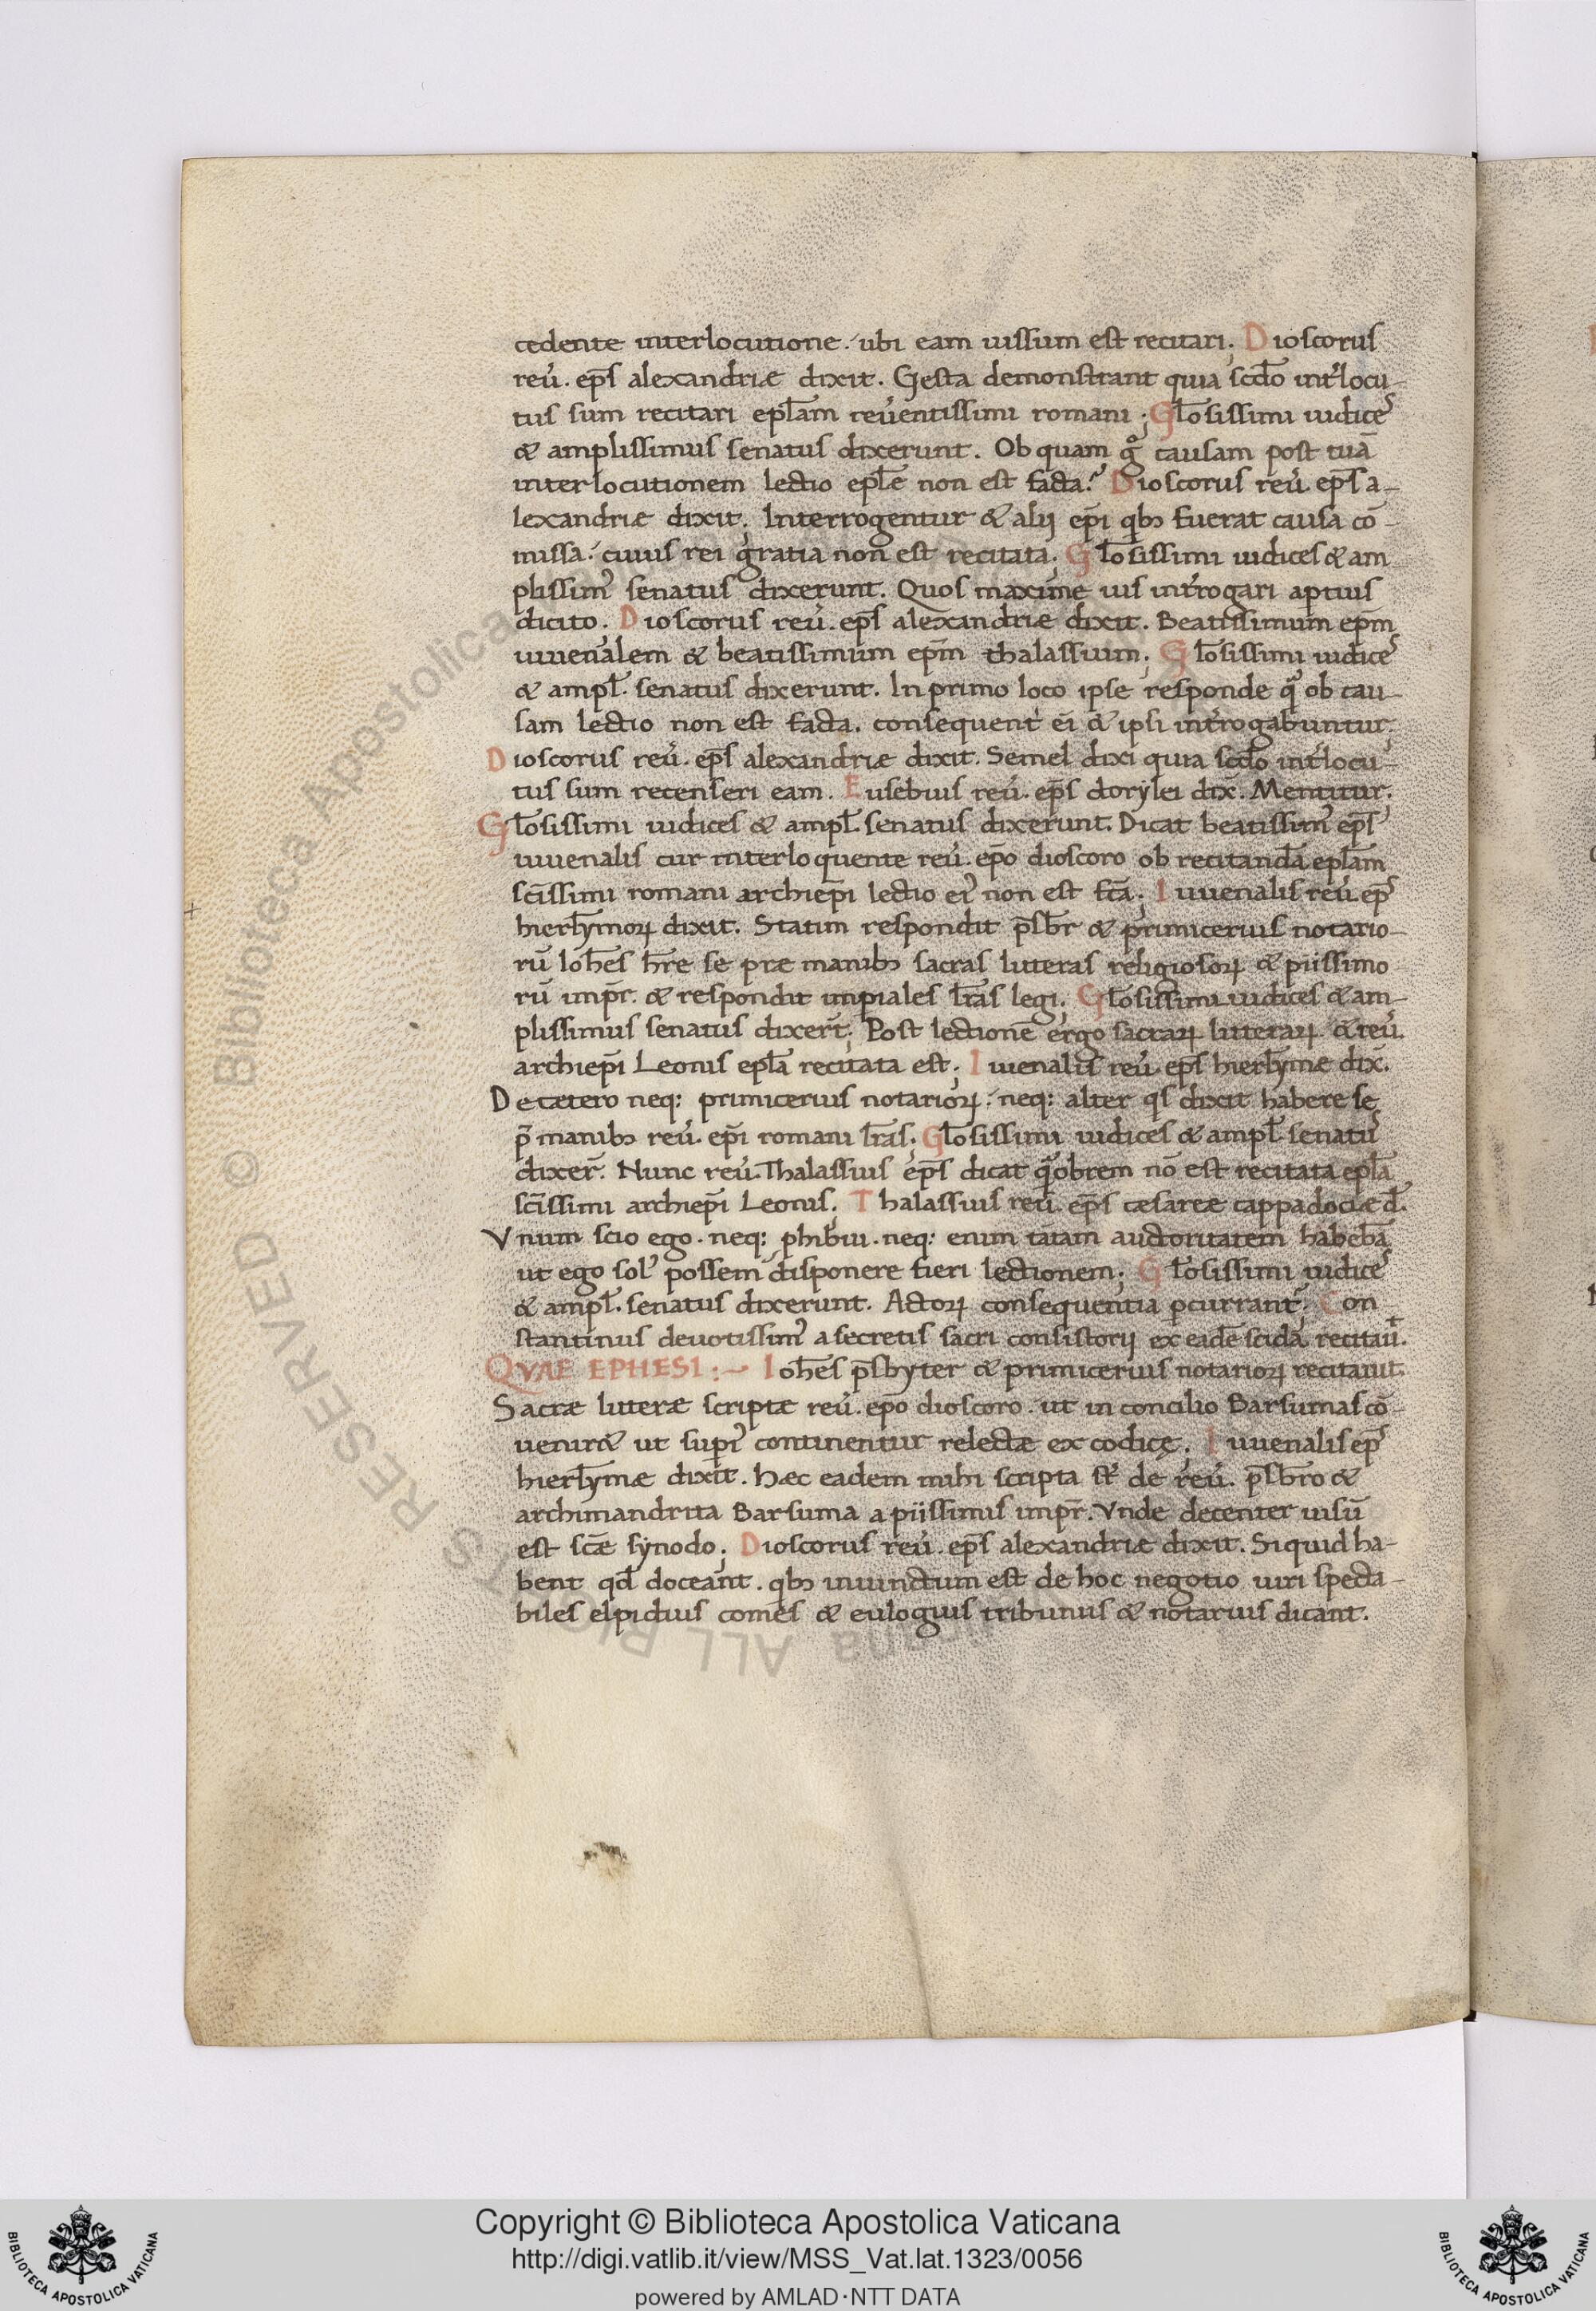 cedente interlocutione. ubi eam iussum est recitari; Dioscorus
reu̓. ep̄s alexandriæ dixit. Gesta demonstrant quia scd̄o int̓locu-
tus sum recitari epl̄am reu̓entissimi romani; Gl̄osissimi iudice᷒
& amplissimus senatus dixerunt. Ob quam gͦ causam post tuā
interlocutionem lectio epl̄e non est facta? Dioscorus reu̓. ep̄s a-
lexandriæ dixit; Interrogentur & alij ep̄i qbꝫ fuerat causa cō-
missa. cuius rei gratia non est recitata; Gl̄osissimi iudices & am
plissim᷒ senatus dixerunt. Quos maxime uis int̓rogari aptius
dicito. Dioscorus reu̓. ep̄s alexandriæ dixit. Beatissimum ep̄m
iuuenalem & beatissimum ep̄m thalassium; Gl̄osissimi iudice᷒
& ampl̄. senatus dixerunt. In primo loco ipse responde qͣ ob cau-
sam lectio non est facta. consequent̓ ei & ipsi int̓rogabuntur;
Dioscorus reu̓. ep̄s alexandriæ dixit. Semel dixi quia scd̄o int̓locu-
tus sum recenseri eam. Eusebius reu̓. ep̄s dorylei dix̄. Mentitur;
Gl̄osissimi iudices & ampl̄. senatus dixerunt. Dicat beatissim᷒ ep̄s
iuuenalis cur interloquente reu̓. ep̄o dioscoro ob recitandā epl̄am
sc̄issimi romani archiep̄i lectio ei᷒ non est fc̄a; Iuuenalis reu̓ ep̄s
hierl̄ymoꝝ dixit. Statim respondit p̄sbr̄ & primicerius notario-
rū Ioh̄es hr̄e se præ manibꝫ sacras litteras religiosoꝝ & piissimo
rū imp̄r. & respondit impiales lr̄as legi; Gl̄osissimi iudices & am-
plissimus senatus dixer̄t; Post lectionē ergo sacraꝝ litteraꝝ & reu̓.
archiep̄i Leonis epl̄a recitata est; Iuuenalis reu̓. ep̄s hierl̄ymæ dix̄.
De cætero neq: primicerius notarioꝝ. neq: alter qs dixit habere se
p̄ manibꝫ reu̓. ep̄i romani lr̄as; Gl̄osissimi iudices & ampl̄. senatu᷒
dixer̄. Nunc reu̓. Thalassius ep̄s dicat qͣobrem nō est recitata epl̄a
sc̄issimi archiep̄i Leonis; Thalassius reu̓. ep̄s cæsareæ cappadociæ d̄.
Vnum scio ego. neq: phibui. neq: enim tātam auctoritatem habebā
ut ego sol᷒ possem disponere fieri lectionem; Gl̄osissimi iudice᷒
& ampl̄. senatus dixerunt. Actoꝝ consequentia pcurrant᷑; Con
stantinus deuotissim᷒ a secretis sacri consistorij ex eadē scida recitau̅.
QVAE EPHESI :~ Ioh̄es p̄sbyter & primicerius notarioꝝ recitauit.
Sacræ litteræ scriptæ reu̓. ep̄o dioscoro. ut in concilio Barsumas cō-
uenir& ut sup̓i᷒ continentur relectæ ex codicę. Iuuenalis ep̄s
hierl̄ymæ dixit. hæc eadem mihi scripta st̄ de reu̓. p̄sbr̄o &
archimandrita Barsuma a piissimis imp̄r. Vnde decenter uisū
est sc̄æ synodo; Dioscorus reu̓. ep̄s alexandriæ dixit. Si quid ha-
bent qd̄ doceant. qbꝫ iniunctum est de hoc negotio uiri specta-
biles elpidius comes & eulogius tribunus & notarius dicant.
© Biblioteca Apostolica Vaticana ALL RIGHTS RESERVED
Copyright © Biblioteca Apostolica Vaticana
http://digi.vatlib.it/view/MSS_Vat.lat.1323/0056
powered by AMLAD·NTT DATA
BIBLIOTECA APOSTOLICA VATICANA
BIBLIOTECA APOSTOLICA VATICANA